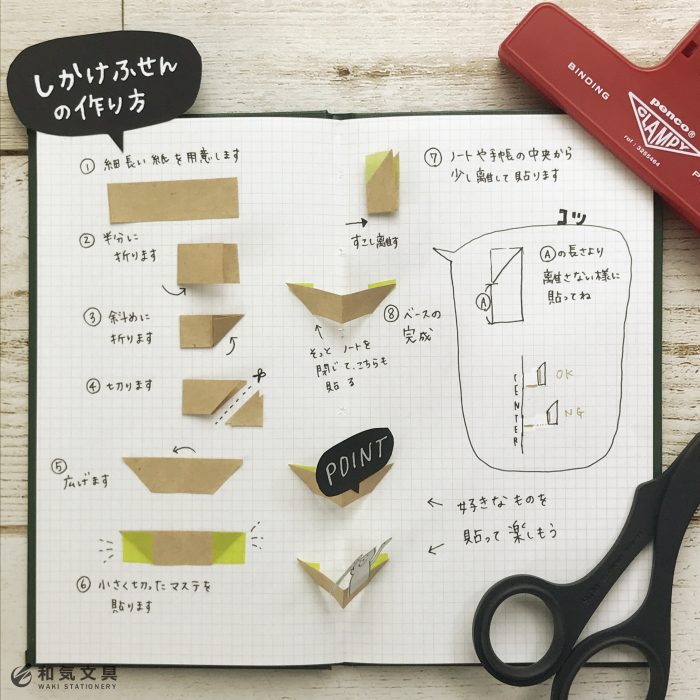 しかけふせん
の作り方
① 細長い紙を用意します
② 半分に
折ります
③ 斜めに
折ります
④ 切ります
⑤
広げます
⑥ 小さく切ったマステを
貼ります
すこし離す
⑦ ノートや手帳の中央から
少し離して貼ります
⑧ ベースの
完成
そっとノートを
閉じて、こちらも
貼る
コツ
Ⓐの長さより
離さない様に
貼ってね
Ⓐ
CENTER
OK
NG
POINT
← 好きなものを
← 貼って楽しもう
BINDING
penco®
CLAMPY
P
和気文具
WAKI STATIONERY